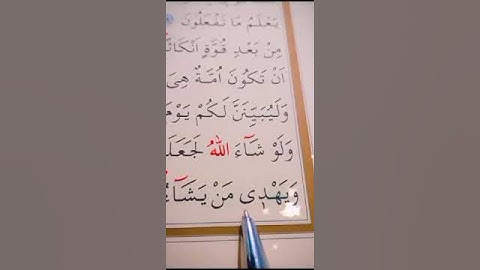 يَعْلَمُ مَا تَفْعَلُونَ
مِنْ بَعْدِ قُوَّةٍ اَنْكَاثًا
اَنْ تَكُونَ اُمَّةٌ هِىَ
وَلَيُبَيِّنَنَّ لَكُمْ يَوْمَ
وَلَوْ شَٓاءَ اللّٰهُ لَجَعَلَ
وَيَهْدٖى مَنْ يَشَٓاءُ